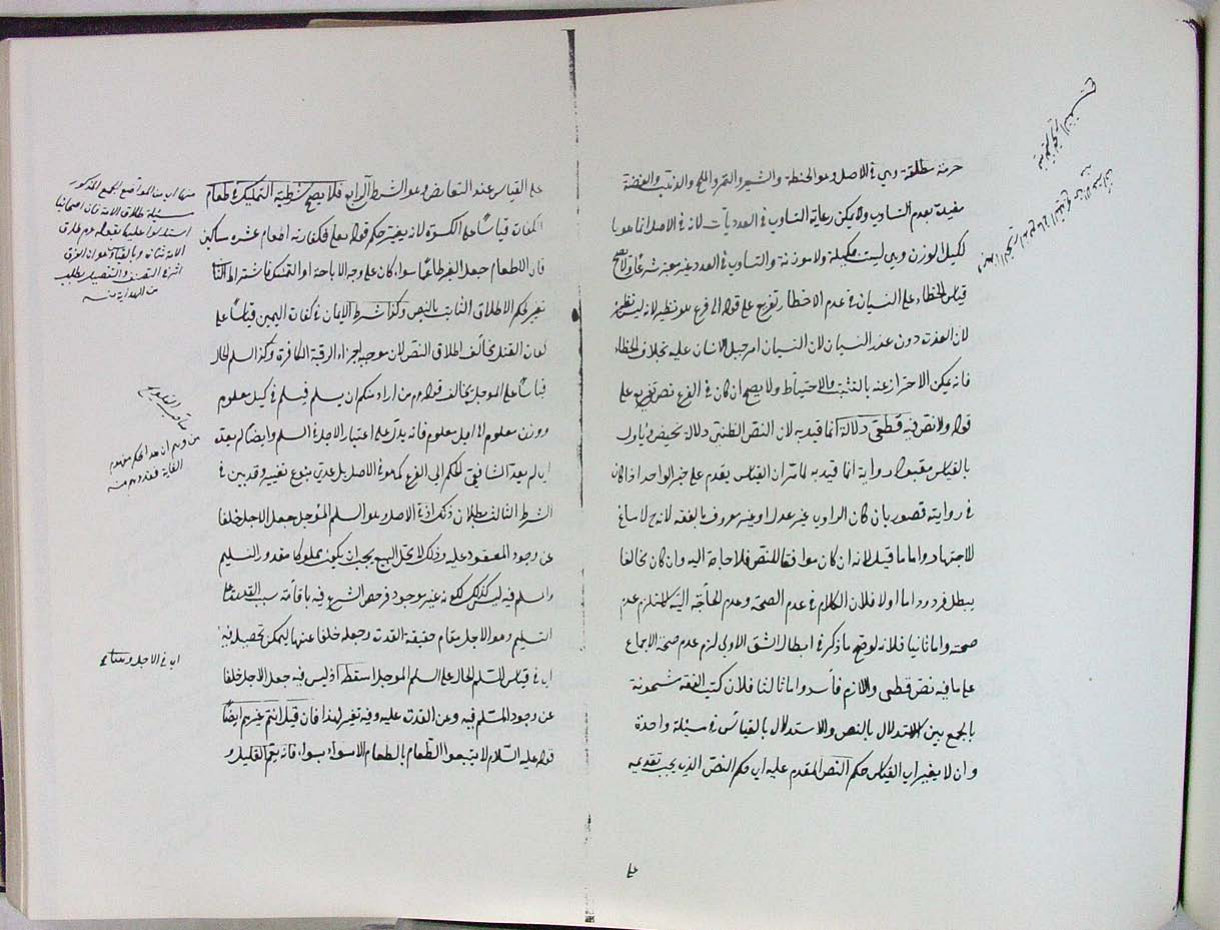 حرمة مطلقة وهي في الاصل وهو الحنطة والشعير والتمر والملح والذهب والفضة
مقيدة بعدم التساوي ولا يمكن رعاية التساوي في العدديات لانه في الاصل انما هو با
لكيل او الوزن وهي ليست مكيلة ولا موزونة والتساوي في العدد غير معتبر شرعا ولا يصح
قياس الخطاء على النسيان في عدم الافطار تفريع على قوله الى فرع هو نظيره لانه ليس نظيره
لان العذر دون عذر النسيان لان النسيان امر جبل الانسان عليه بخلاف الخطاء
فانه يمكن الاحتراز عنه بالتثبت والاحتياط ولا يصح ان كان في الفرع نص تفريع على
قوله ولا نص فيه قطعي دلالة انما قيد به لان النص الظني دلالة يخصص ويأول
بالقياس مقبول رواية انما قيد به لما مر ان القياس يقدم على خبر الواحد اذا كان
في روايته قصور بان كان الراوي غير عدل او غير معروف بالفقه لانه ح لا مساغ
للاجتهاد واما ما قيل لانه ان كان موافقا للنص فلا حاجة اليه وان كان مخالفا
يبطل فمردود اما اولا فلان الكلام في عدم الصحة وعدم الحاجة اليه لا يستلزم عدم
صحته واما ثانيا فلانه لو صح ما ذكر في ابطال الشق الاول لزم عدم صحة الاجماع
على ما فيه نص قطعي واللازم فاسد واما ثالثا فلان كتب الفقه مشحونة
بالجمع بين الاستدلال بالنص والاستدلال بالقياس في مسئلة واحدة
وان لا يغير اي القياس حكم النص المقدم عليه اي حكم النص الذي يجب تقديمه
على
على القياس عند التعارض وهو الشرط الرابع فلا يصح شرطية التمليك في طعام
الكفارات قياسا على الكسوة لانه يغير حكم قوله تعالى فكفارته اطعام عشرة مساكين
فان الاطعام جعل الغير طاعما سواء كان على وجه الاباحة او التمليك فاشتراط الثاني
تغيير لحكم الاطلاق الثابت بالنص وكذا شرط الايمان في كفارة اليمين قياسا على
كفارة القتل يخالف اطلاق النص لان موجبه اجزاء الرقبة الكافرة وكذا السلم الحال
قياسا على المؤجل يخالف قوله م من اراد منكم ان يسلم فليسلم في كيل معلوم
ووزن معلوم الى اجل معلوم فانه يدل على اعتبار الاجل في السلم وايضا لم يعده
اي لم يعد الشافعي الحكم الى الفرع كما هو في الاصل بل عدى بنوع تغيير وقد بين في
الشرط الثالث بطلان ذلك اذ في الاصل وهو السلم المؤجل جعل الاجل خلفا
عن وجود المعقود عليه وذلك لان محل البيع يجب ان يكون مملوكا مقدور التسليم
والمسلم فيه ليس كذلك لكونه غير موجود فرخص الشرع فيه باقامة سبب القدرة على
التسليم وهو الاجل مقام حقيقة القدرة وجعله خلفا عنها ليمكن تحصيله فيه
اي في قياس السلم الحال على السلم المؤجل اسقطه اذ ليس فيه جعل الاجل خلفا
عن وجود المسلم فيه وعن القدرة عليه وفيه تغيير لهذا فان قيل انتم غيرتم ايضا
قوله عليه السلام لا تبيعوا الطعام بالطعام الا سواء بسواء فانه يعم القليل و
استدلوا عليها بقوله م طلاق
الامة ثنتان وبالقياس وهو ان الرق
من الهداية منه
من وهم ان هذا الحكم مفهوم
الغاية فقد وهم منه